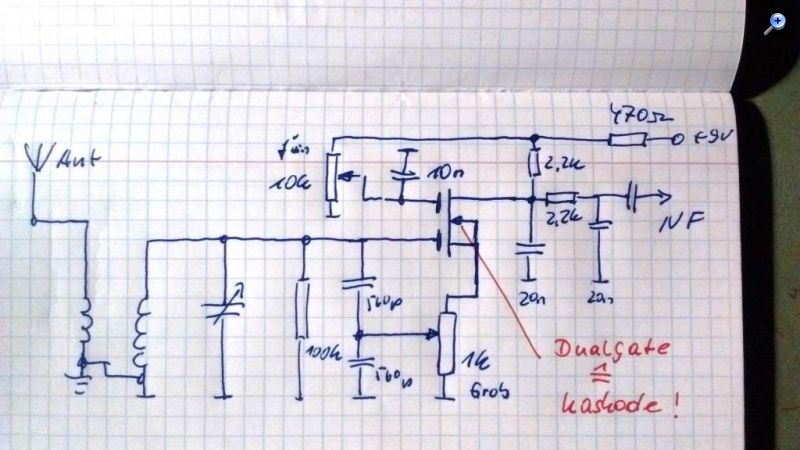 470Ω
+9V
Ant
fein
10k
10n
2,2k
2,2k
NF
20n
20n
560p
100k
560p
1k
Grob
Dualgate
≙
Kaskode!